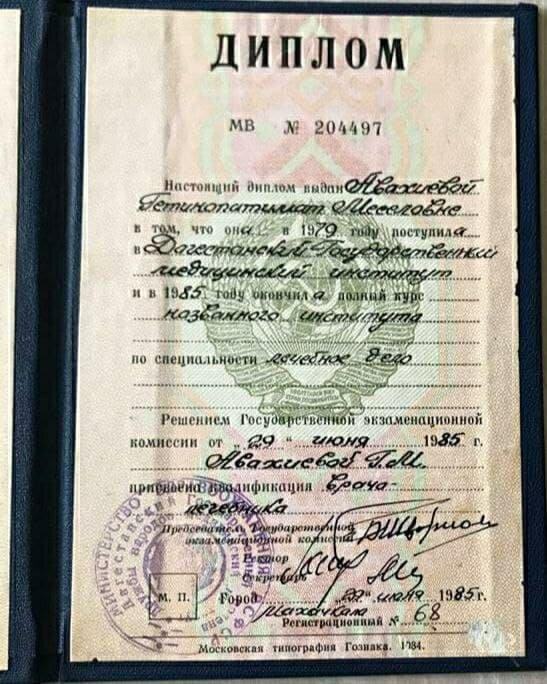 ДИПЛОМ
МВ № 204497
Настоящий диплом выдан Авахиевой
Гетинопатимат Меселовне
в том, что она в 1979 году поступила
в Дагестанский Государственный
медицинский институт
и в 1985 году окончила полный курс
названного института
по специальности лечебное дело
Решением Государственной экзаменационной
комиссии от „29" июня 1985 г.
Авахиевой Г.М.
присвоена квалификация врача-
лечебника
Председатель Государственной
экзаменационной комиссии
Ректор
Секретарь
М. П. Город „29" июня 1985 г.
Махачкала
Регистрационный № 68
Московская типография Гознака. 1984.